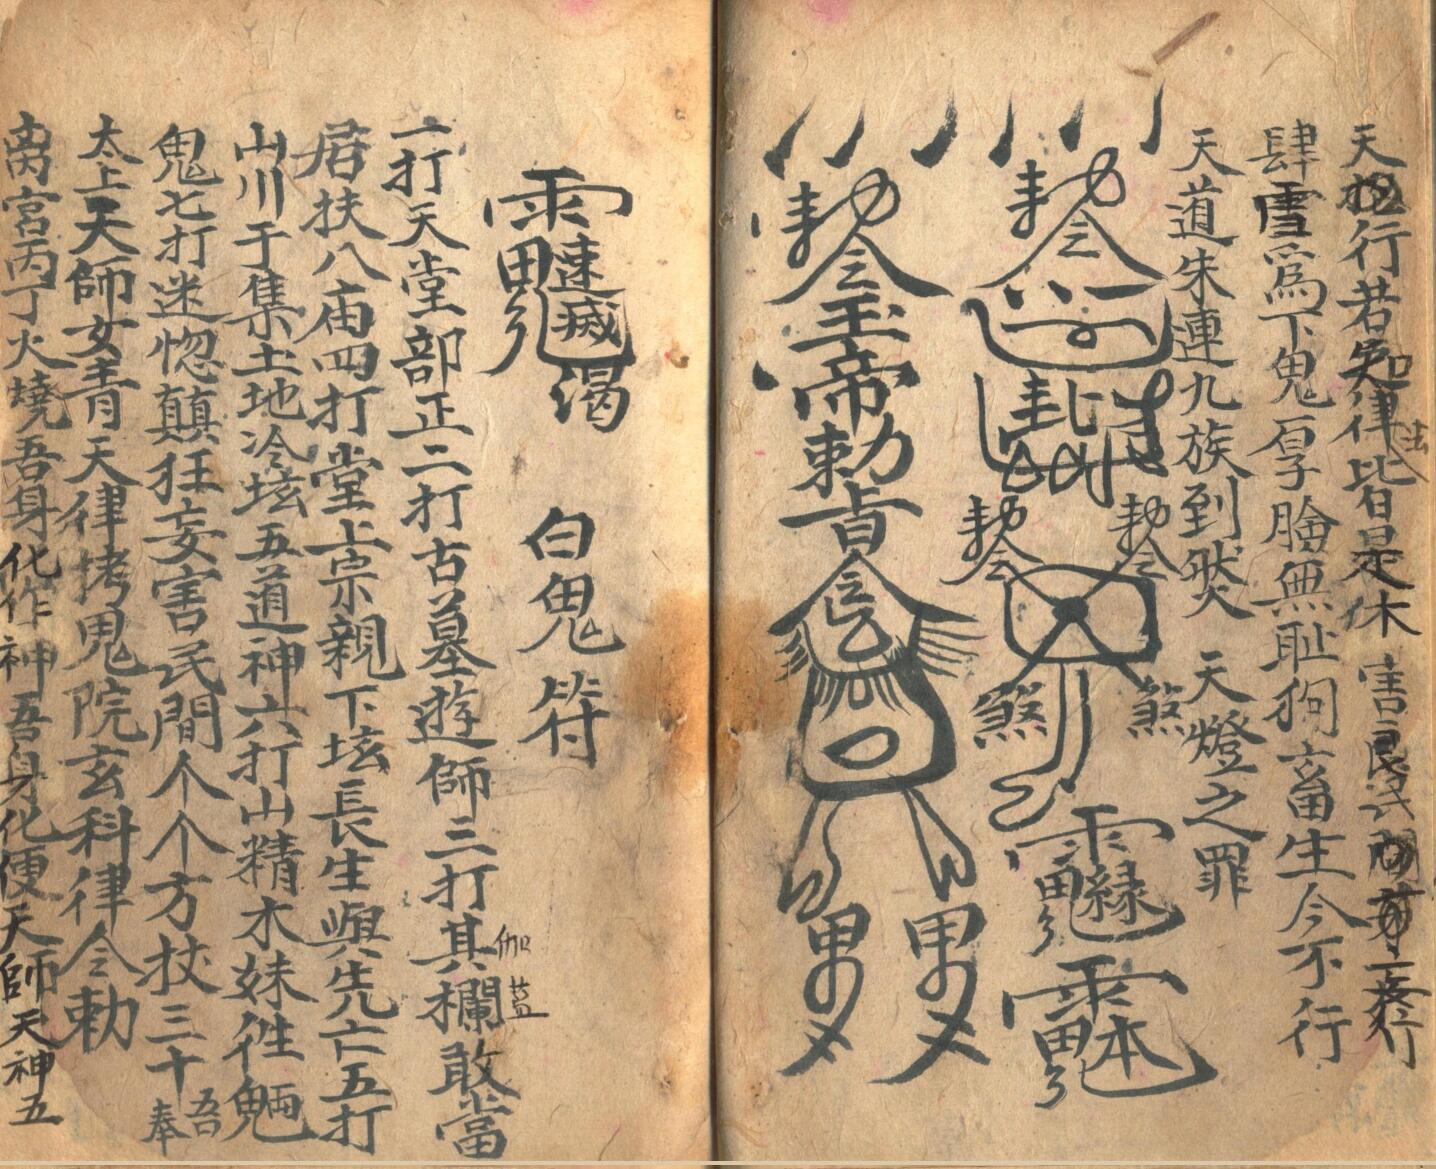 天 行若知律法皆是休 害良民
肆雪為下鬼厚臉無耻狗畜生今不行
天道朱連九族到然 天燈之罪
勅令
勅令 勅令
煞 煞
勅令
玉帝勅旨
白鬼符
一打天堂部正二打古墓遊師三打其欄伽藍敢當
君扶八庙四打堂上宗親下坛長生與先亡五打
山川于集土地冷坛五道神六打山精木妹性魎
鬼七打迷惚顛狂妄害民間个个方扙三十吾奉
太上天師女青天律拷鬼院玄科律令勅
离宮丙丁火燒吾身化作神吾身化便天師天神五